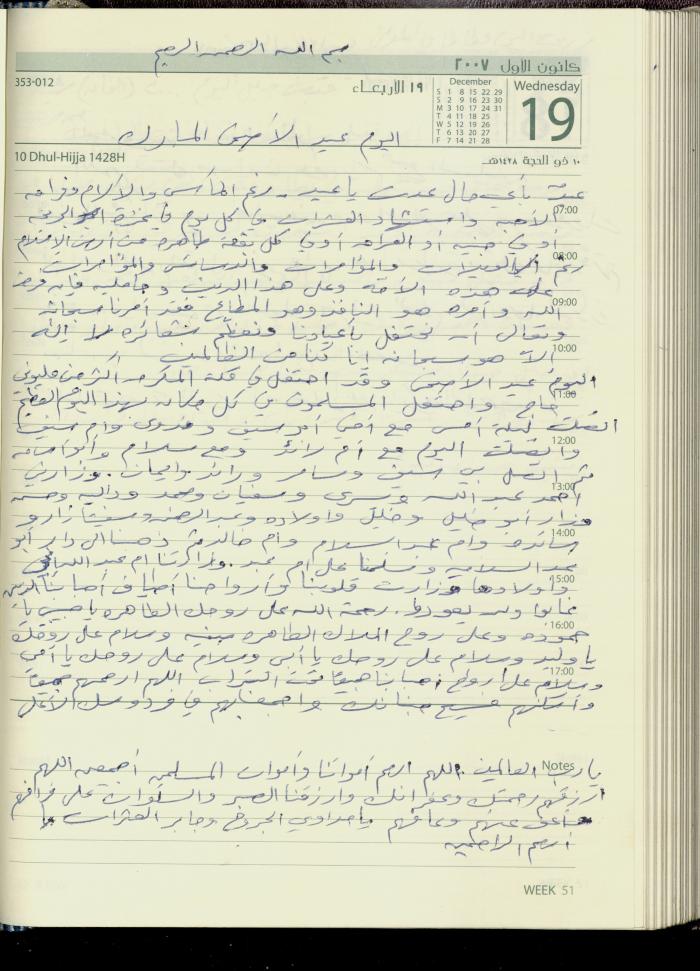 بسم الله الرحمن الرحيم
كانون الاول ٢٠٠٧
353-012
١٩ الاربعـاء
December
Wednesday
S 1 8 15 22 29
S 2 9 16 23 30
M 3 10 17 24 31
T 4 11 18 25
W 5 12 19 26
T 6 13 20 27
F 7 14 21 28
19
اليوم عيد الأضحى المبارك
10 Dhul-Hijja 1428H
١٠ ذو الحجة ١٤٢٨هـ
عيدٌ بأي حال عدت يا عيد .. رغم المآسي والآلام وفراق
07:00
الأحبة واستشهاد العشرات في كل يوم في غزة الجريحة
أو في جنين أو القرى أو في كل بقعة طاهرة من أرض
08:00
رغم الويلات والمؤامرات والدسائس والمؤامرات
على هذه الأمة وعلى هذا الدين وحامليه فإنه فرض
09:00
الله وأمره هو النافذ وهو المطاع فقد أمرنا سبحانه
وتعالى أن نحتفل بأعيادنا ونعظم شعائره لا إله
10:00
إلا هو سبحانه إنا كنا من الظالمين
اليوم عيد الأضحى وقد احتفل في مكة المكرمة أكثر من مليوني
11:00
حاج واحتفل المسلمون في كل مكان بهذا اليوم العظيم
اتصلت ليلة أمس مع أخي أبو سيف وفدوى وام سيف
12:00
واتصلت اليوم مع أم رائد ومع سلام و
ثم اتصل بي سيف وسامر ورائد وايمان . وزارني
13:00
أحمد عبد الله ويسرى وسفيان ومحمد وداليه وحسن
وزار أبو خليل وخليل وأولاده وعبد الرحمن وسفيان زارو
14:00
سائده وأم عبد السلام وأم خالد ثم ذهبنا الى دار أبو
عبد السلام وسلمنا على أم محمد . وزارتنا ام عبد الله
15:00
وأولادها وزارت قلوبنا وأرواحنا أطياف أحبابنا الذين
غابوا ولن يعودوا . رحمة الله على روحك الطاهره يا حبيبي يا
16:00
حموده وعلى روح الملاك الطاهره وسلام على روحك
يا وليد وسلام على روحك يا أبي وسلام على روحك يا أمي
17:00
وسلام على أرواح أحبابنا جميعاً تحت التراب اللهم ارحمهم جميعاً
وأسكنهم فسيح جناتك واجمعنا بهم في فردوسك الأعلى
Notes
يا رب العالمين . اللهم ارحم أمواتنا وأموات المسلمين أجمعين اللهم
ارزقهم رحمتك وغفرانك وارزقنا الصبر والسلوان على فراقهم
واعف عنهم وعافهم يا مداوي الجروح وجابر العثرات يا
أرحم الراحمين
WEEK 51